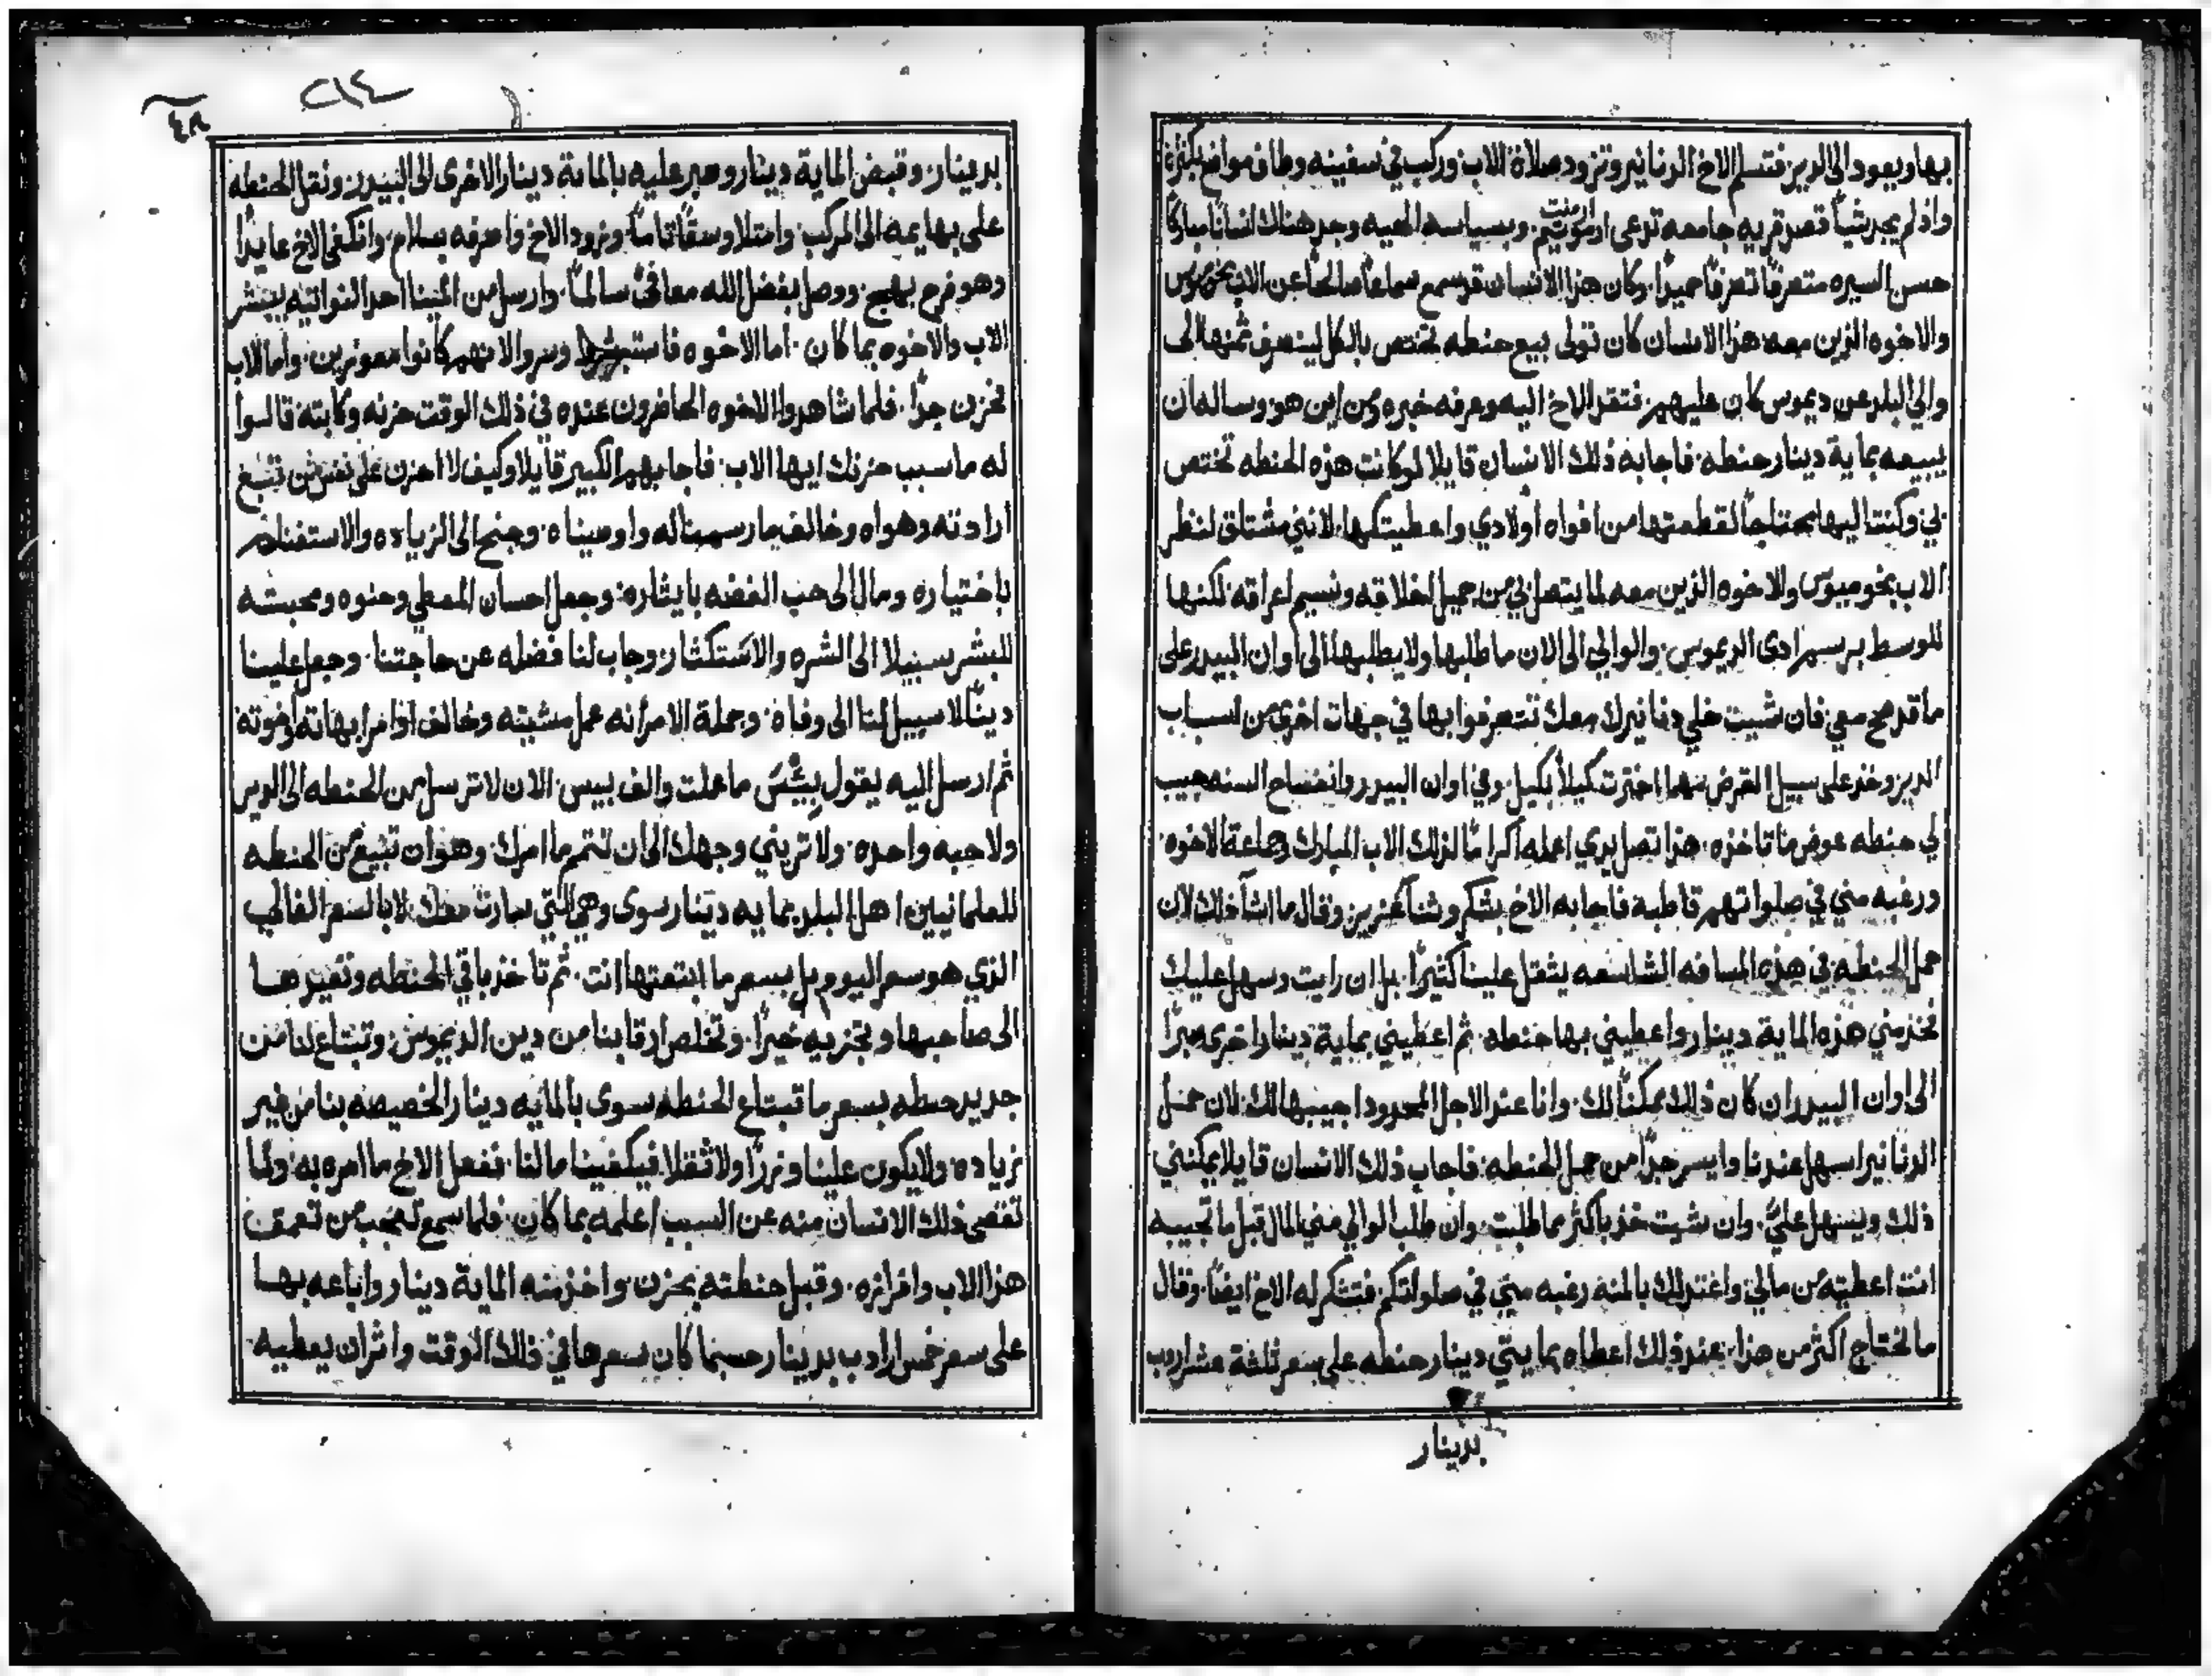 بها ويعود الى الدير فتسلم الاخ الدنانير وتزود صلاة الاب وركب في سفينه وطاف مواضع كثيرة
واذ لم يجد شيًا قصد قريه جامعه تدعى ارمنت وبسياسه الهيه وجد هناك انسانًا مباركًا
حسن السيره متصرفًا تصرفًا حميدًا. وكان هذا الانسان قد سمع سماعًا صالحًا عن الاب بخوميوس
والاخوه الذين معه هذا الانسان كان تولى بيع حنطه تختص بالكل لينصرف ثمنها الى
والي البلد عن ديموس كان عليهم. فتقدم الاخ اليه وعرفه خبره ومن اين هو وساله ان
يبيعه بماية دينار حنطه. فاجابه ذلك الانسان قايلا لو كانت هذه الحنطه تختص
بي وكنت اليها محتاجًا لقطعتها من افواه اولادي واعطيتكها. لانني مشتاق لنظر
الاب بخوميوس والاخوه الذين معه لما يتصل بي من جميل اخلاقه ونسيم اعراقه. لكنها
للوسط برسم ادى الديموس. والوالي الى الان ما طلبها ولا يطلبها الى اوان البيدر على
ما قد صح معي. فان شيت خلي دنانيرك معك تتصرفوا بها في جهات اخرى من اسباب
الدير وخذ على سبيل القرض مهما اخترت كيلاً بكيل. وفي اوان البيدر وانفساح السنه جيب
لي حنطه عوض ما تاخذه. هذا تصل يدي اعمله اكرامًا لذلك الاب المبارك وجماعة الاخوه.
ورغبه مني في صلواتهم قاطبة فاجابه الاخ بشكر وثنا كثيرين وقال ما اشا ذلك لان
حمل الحنطه في هذه المسافه الشاسعه يثقل علينا كثيرًا. بل ان رايت وسهل عليك
فخذ مني هذه الماية دينار واعطيني بها حنطه. ثم اعطيني بماية دينار اخرى صبرًا
الى اوان البيدر ان كان ذلك ممكنًا لك. وانا عند الاجل المحدود اجيبها لك. لان حمل
الدنانير اسهل عندنا وايسر جدًا من حمل الحنطه. فاجاب ذلك الانسان قايلا يمكنني
ذلك ويسهل علي. وان شيت خذ باكثر مما طلبت. وان طلب الوالي مني المال قبل ما تجيبه
انت اعطيته من مالي واعتد لك بالمنه رغبه مني في صلواتكم. فتشكر له الاخ ايضًا. وقال
ما نحتاج اكثر من هذا. بعد ذلك اعطاه بمايتي دينار حنطه على سعر ثلثة عشر اردب
بدينار
٢١٤
٤٨
بدينار. وقبض الماية دينار وصبر عليه بالماية دينار الاخرى الى البيدر. ونقل الحنطه
على بهايمه الى المركب. وامتلا وسقًا تامًا. وزود الاخ واصرفه بسلام. وانكفى الاخ عايدًا
وهو فرح بهج. ووصل بفضل الله معافًى سالمًا. وارسل من المينا احد النواتيه يبشر
الاب والاخوه بما كان. اما الاخوه فاستبشروا وسروا لانهم كانوا معوزين. واما الاب
فحزن جدًا. فلما شاهدوا الاخوه الحاضرون عنده في ذلك الوقت حزنه وكابته. قالوا
له ما سبب حزنك ايها الاب. فاجابهم الكبير قايلا وكيف لا احزن على نفس من تتبع
ارادته وهواه وخالف ما رسمنا له واوصيناه. وجنح الى الزياده والاستغنام
باختياره ومال الى حب الفضه بايثاره. وجعل احسان المعطي وحنوه ومحبته
للبشر سبيلا الى الشره والاستكثار. وجاب لنا فضله عن حاجتنا. وجعل علينا
دينًا لا سبيل لنا الى وفاه. وجملة الامر انه عمل مشيته وخالف اوامر ابهاته واخوته
ثم ارسل اليه يقول بيس ما عملت والف بيس. الان لا ترسل من الحنطه الى الدير
ولا حبه واحده. ولا تريني وجهك الى ان تتمم ما امرك. وهو ان تبيع من الحنطه
للعلمانيين اهل البلد بمايه دينار سوى وهي التي سارت معك. لا بالسعر الغالي
الذي هو سعر اليوم بل بسعر ما ابتعتها انت. ثم تاخذ باقي الحنطه وتعيدها
الى صاحبها وتجزيه خيرًا. وتخلص ارقابنا من دين الديموس. وتبتاع لنا من
جديد حنطه بسعر ما تبتاع الحنطه سوى بالمايه دينار الخصيصه بنا من غير
زياده. ولا يكون علينا وزرًا ولا ثقلا. فيكفينا ما لنا. ففعل الاخ ما امره به. ولما
تقصى ذلك الانسان منه عن السبب اعلمه بما كان. فلما سمع تعجب من تعمق
هذا الاب وافرازه. وقبل حنطته بحزن واخذ منه الماية دينار واباعه بها
على سعر خمس ارادب بدينار حسبما كان سعرها في ذلك الوقت واثر ان يعطيه